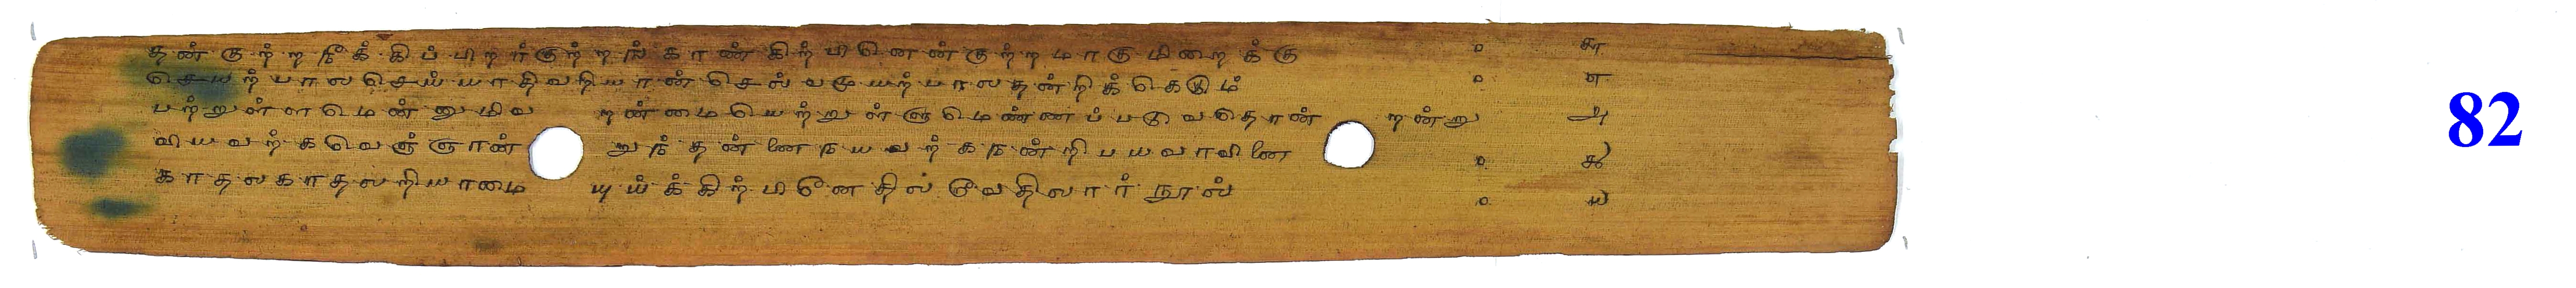 தன்குற்றநீக்கிப்பிறர்குற்றங்காண்கிற்பினென்குற்றமாகுமிறைக்கு ௦ ௬
செயற்பாலசெய்யாதிவறியான்செல்வமுயற்பாலதன்றிக்கெடும் ௦ ௭
பற்றுள்ளமென்னுமிவறன்மையெற்றுள்ளுமெண்ணப்படுவதொன்றன்று ௮
வியவற்கவெஞ்ஞான்றுந்தன்னைநயவற்கநன்றிபயவாவினை ௦ ௯
காதலகாதலறியாமையுய்க்கிற்பினேதிலவேதிலார்நூல் ௦ ௰
82